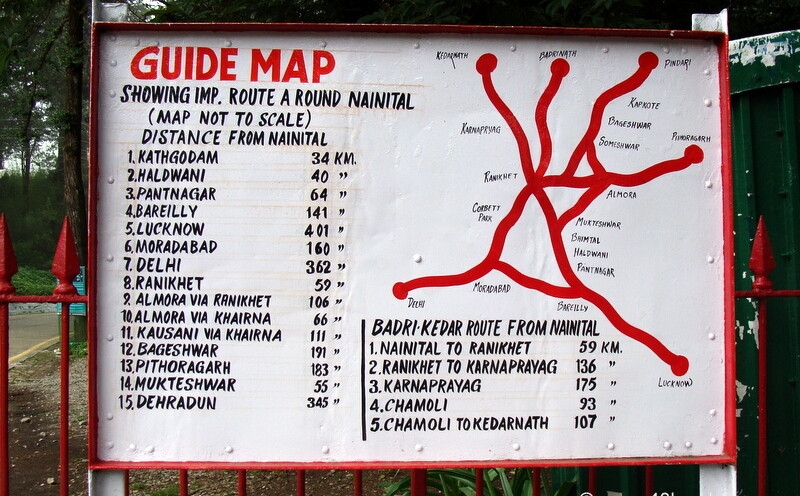 GUIDE MAP
SHOWING IMP. ROUTE A ROUND NAINITAL
(MAP NOT TO SCALE)
DISTANCE FROM NAINITAL
1. KATHGODAM 34 KM.
2. HALDWANI 40 "
3. PANTNAGAR 64 "
4. BAREILLY 141 "
5. LUCKNOW 401 "
6. MORADABAD 160 "
7. DELHI 362 "
8. RANIKHET 59 "
9. ALMORA VIA RANIKHET 106 "
10. ALMORA VIA KHAIRNA 66 "
11. KAUSANI VIA KHAIRNA 111 "
12. BAGESHWAR 191 "
13. PITHORAGARH 183 "
14. MUKTESHWAR 55 "
15. DEHRADUN 345 "
KEDARNATH
BADRINATH
PINDARI
KAPKOTE
BAGESHWAR
SOMESHWAR
KARNAPRAYAG
PITHORAGARH
RANIKHET
ALMORA
CORBETT
PARK
MUKTESHWAR
BHIMTAL
HALDWANI
PANTNAGAR
MORADABAD
DELHI
BAREILLY
LUCKNOW
BADRI-KEDAR ROUTE FROM NAINITAL
1. NAINITAL TO RANIKHET 59 KM.
2. RANIKHET TO KARNAPRAYAG 136 "
3. KARNAPRAYAG 175 "
4. CHAMOLI 93 "
5. CHAMOLI TO KEDARNATH 107 "